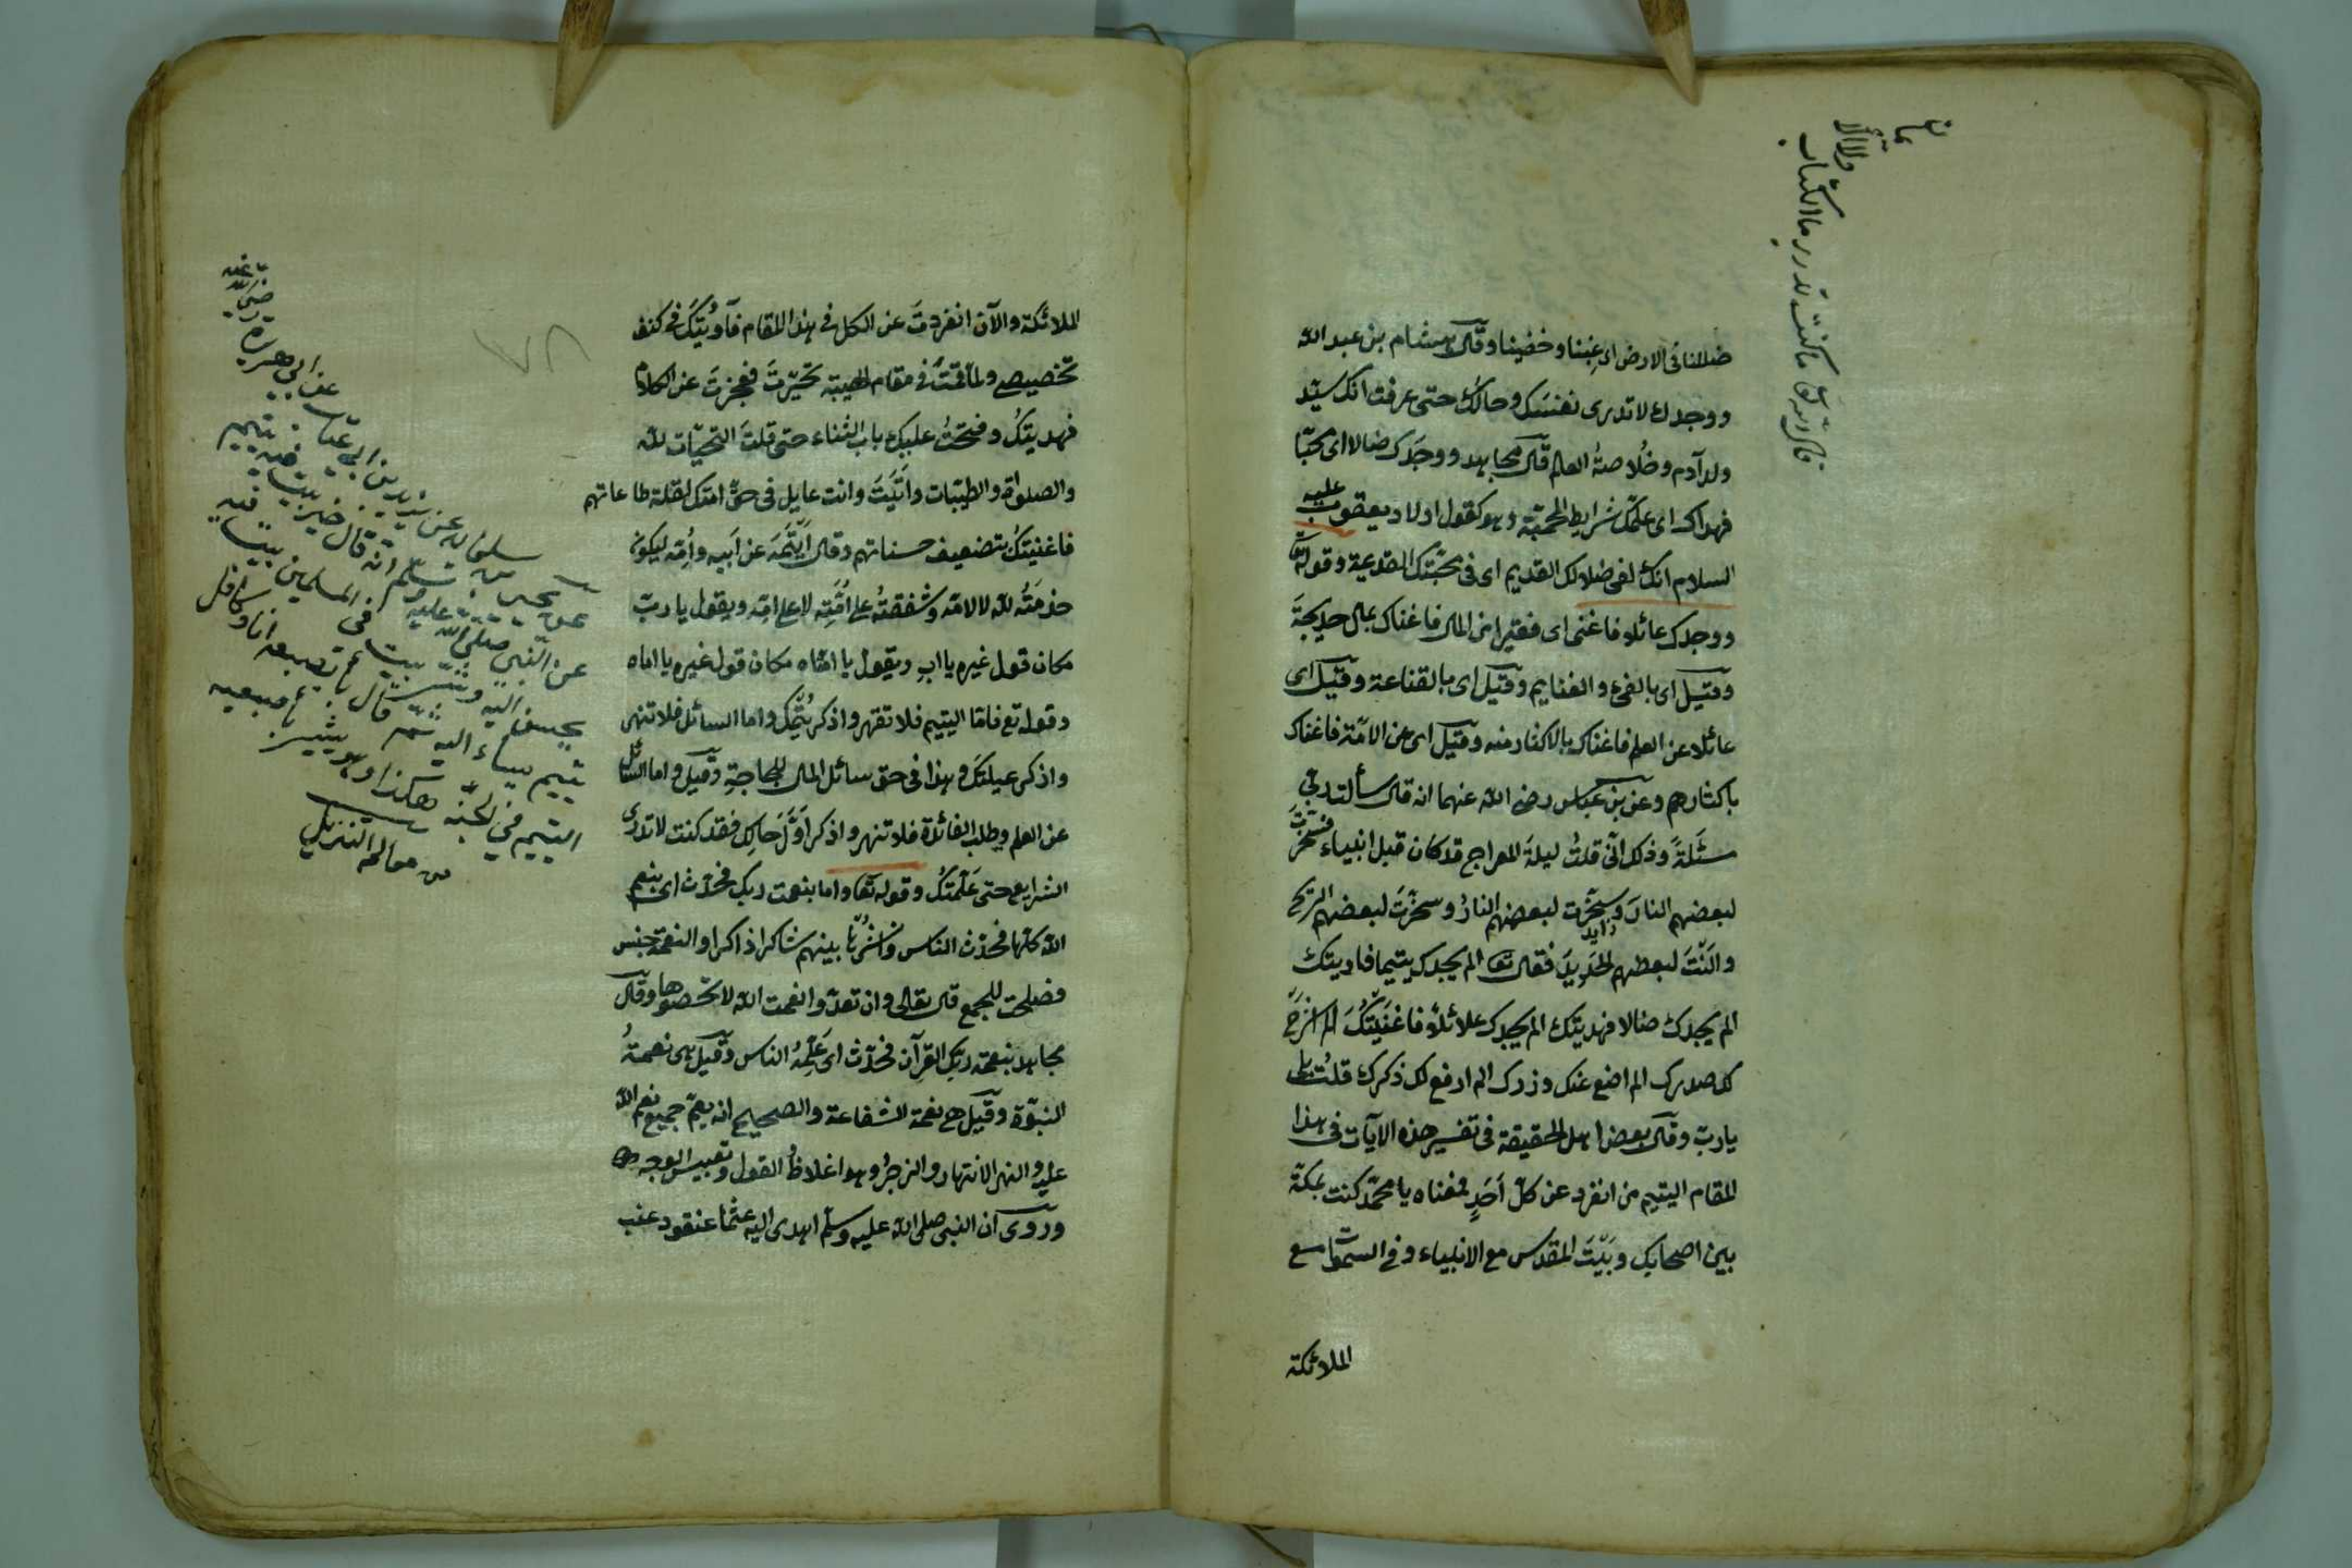 ضللنا فى الارض اى غبنا وخفينا وقال هشام بن عبد الله
ووجدك لا تدرى نفسك وحالك حتى عرفت انك سيّد
ولد آدم وخُلاصةُ العالم قال مجاهد ووجدك ضالا اى محبّا
فهداك اى علمك شرايط المحبّة وهو كقول اولاد يعقوب عليه
السلام انك لفى ضلالك القديم اى فى محبّتك القديمة وقوله تعا
ووجدك عائلا فاغنى اى فقيرا من المال فاغناك بمال خديجةَ
وقيل اى بالفئ والغنايم وقيل اى بالقناعة وقيل اى
عائلا عن العلم فاغناك بالاكثار منه وقيل اى عن الامّة فاغناك
باكثارهم وعن بن عباس رضى الله عنهما انه قال سألت ربى
مسئلةً وذلك انّى قلتُ ليلةَ المعراج قد كان قبل انبياء فسخّرت
لبعضهم النارَ وسخّرت لبعضهم النارُ وسخّرتَ لبعضهم الريح
والَنْتَ لبعضهم الحَديدَ فقال تعا الم يجدك يتيما فاويتك
الم يجدك ضالا فهديتك الم يجدك علائلاً فاغنَيتُكَ الم اشرح
لك صدرك الم اضع عنك وزرك الم ارفع لك ذكرك قلتُ بلى
يا ربّ وقال بعض اهل الحقيقة فى تفسير هذه الآيات فى هذا
المقام اليتيم من انفرد عن كلّ اَحَدٍ فمعناه يا محمّد كنت بمكة
بين اصحابك وبَيْتَ المقدس مع الانبياء وفى السموات مع
الملائكة
فاكرمتك
ما كنت تدرى ما الكتاب
ولا الا
يما
ن
الملائكة والآن انفردتَ عن الكل فى هذا المقام فآويتكَ فى كنف
تخصيصى ولمّا قمتَ فى مقام الهيبة تحيّرتَ فعجزتَ عن الكلام
فهديتكَ وفتحتُ عليك باب الثناء حتى قلتَ التحيّات لله
والصلوات والطيّبات واَتَيْتَ وانت عايل فى حقّ امتك لقلة طاعاتهم
فاغنيتك بتضعيف حسناتهم وقال اَيْتَمَهُ عن اَبيه واُمّه ليكون
خذمَتُه لله لا لامّه وشفقتُهُ على اُمَّتِه لا على امّه ويقول يا ربّ
مكان قول غيره يا ابِ ويقول يا امّتاه مكان قول غيره يا اماه
وقوله تع فاما اليتيم فلا تقهر واذكر يُتْمَك واما السائل فلا تنهر
واذكر عيلتَكَ وهذا فى حق سائل المال للحاجة وقيل واما السائل
عن العلم وطلب الفائدة فلا تنهر واذكر اوّلَ حَالِك فقد كنت لا تدرى
الشرايع حتى عَلّمتكُ وقوله تعا واما بنعمت ربك فحدّث اى بنعم
الله كلّها فحدّث الناس وانشُرْها بينهم شاكرا ذاكرا والنعمة جنس
فصلحت للجمع قال تعالى وان تعدّوا نعمت الله لا تحصوها وقال
مجاهد بنعمة ربك القرآن فحدّث اى عَلِّمْهُ الناس وقيل هى نعمةُ
النبوّة وقيل هى نعمة الشفاعة والصحيح انه يعمّ جميع نعم الله
عليه والنهر الانتهار والزجرُ وهو اغلاظُ القول وتعبيس الوجه
وروى ان النبى صلى الله عليه وسلّم اهدى اليه عثمان عنقود عنب
٧٨
عن ابى هريرة رضى الله عنه
عن النبى صلى الله عليه وسلّم انه قال خير بيت فى المسلمين بيت فيه يتيم
يحسن اليه وشرّ بيت
يتيم يساء اليه ثمّ قال باصبعيه انا وكافل
اليتيم فى الجنّة هكذا وهو يشير باصبعيه
من معالم التنزيل